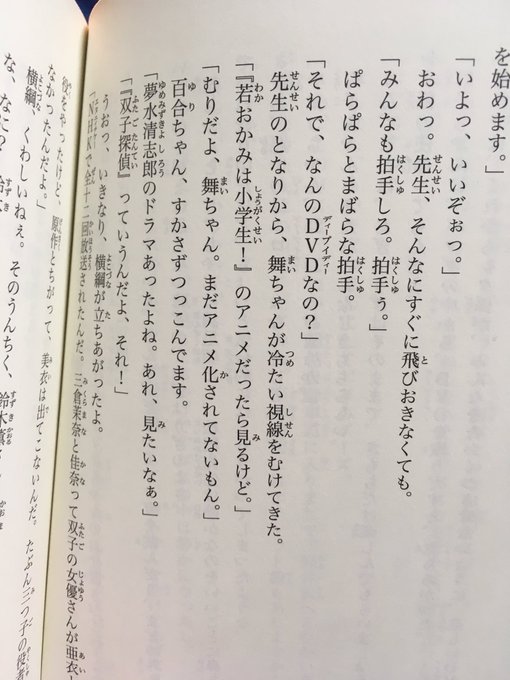 を始めます。」
「いよっ、いいぞおっ。」
おわっ。先生、そんなにすぐに飛びおきなくても。
「みんなも拍手しろ。拍手ぅ。」
ぱらぱらとまばらな拍手。
「それで、なんのDVDなの?」
先生のとなりから、舞ちゃんが冷たい視線をむけてきた。
「『若おかみは小学生!』のアニメだったら見るけど。」
「むりだよ、舞ちゃん。まだアニメ化されてないもん。」
百合ちゃん、すかさずつっこんでます。
「夢水清志郎のドラマあったよね。あれ、見たいなぁ。」
「『双子探偵』っていうんだよ、それ!」
うおっ、いきなり、横綱が立ちあがったよ。
「NHKで全十二回放送されたんだ。三倉茉奈と佳奈って双子の女優さんが亜衣
役をやったけど、原作とちがって、美衣は出てこないんだ。たぶん三つ子の役者
なかったんだよ。」
横綱 くわしいねぇ。そのうんちく、鈴木薫
な、なに?